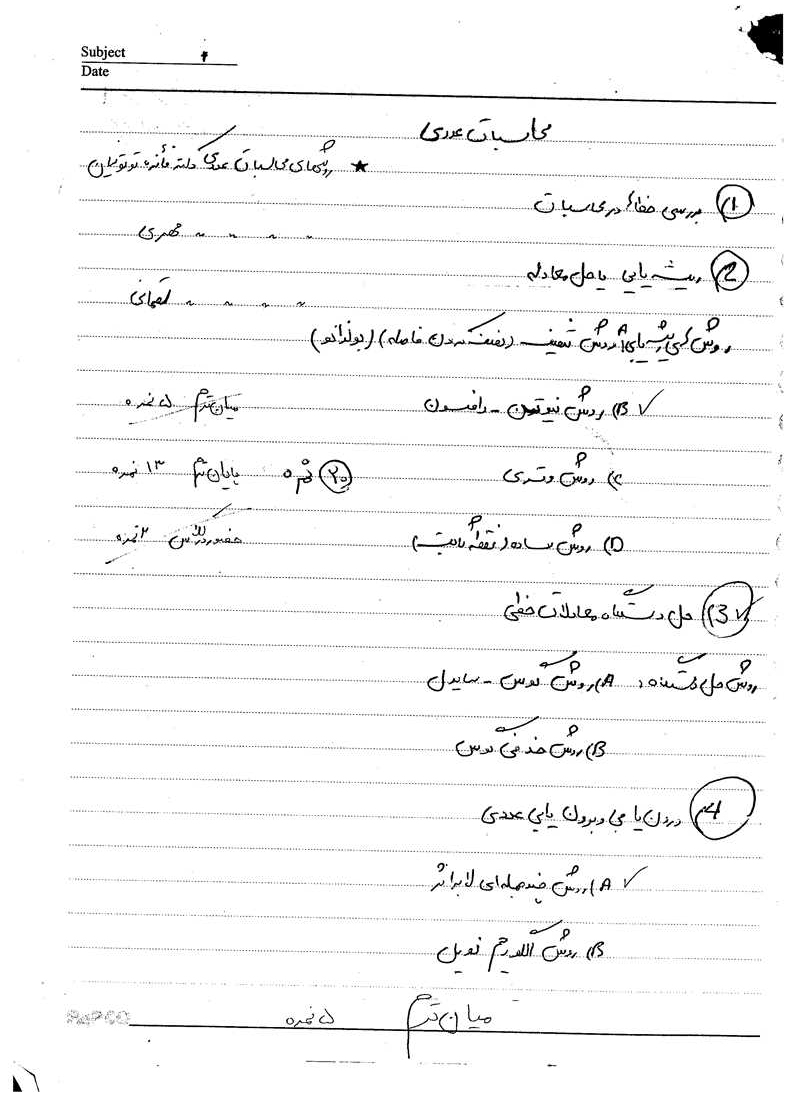 Subject
Date
محاسبات عددی
★ روشهای محاسبات عددی دکتر فائزه توتونیان
(1 بررسی خطا در محاسبات
〃 〃 〃 〃 مهری
(2 ریشه یابی یا حل معادله
〃 〃 〃 〃 لقمانی
روش های ریشه یابی: A) روش تنصیف (نصف کردن فاصله) (بولزانو)
B) روش نیوتن - رافسون ✓
میان ترم ۵ نمره
C) روش وتری
۲۰ نمره
پایان ترم ۱۳ نمره
D) روش ساده (نقطه ثابت)
حضور در کلاس ۲ نمره
(3 حل دستگاه معادلات خطی ✓
روش حل دستگاه: A) روش گوس - سایدل
B) روش حذفی گوس
(4 درون یابی و برون یابی عددی
A) روش چند جمله ای لاگرانژ ✓
B) روش الگوریتم نویل
میان ترم ۵ نمره
PAPCO